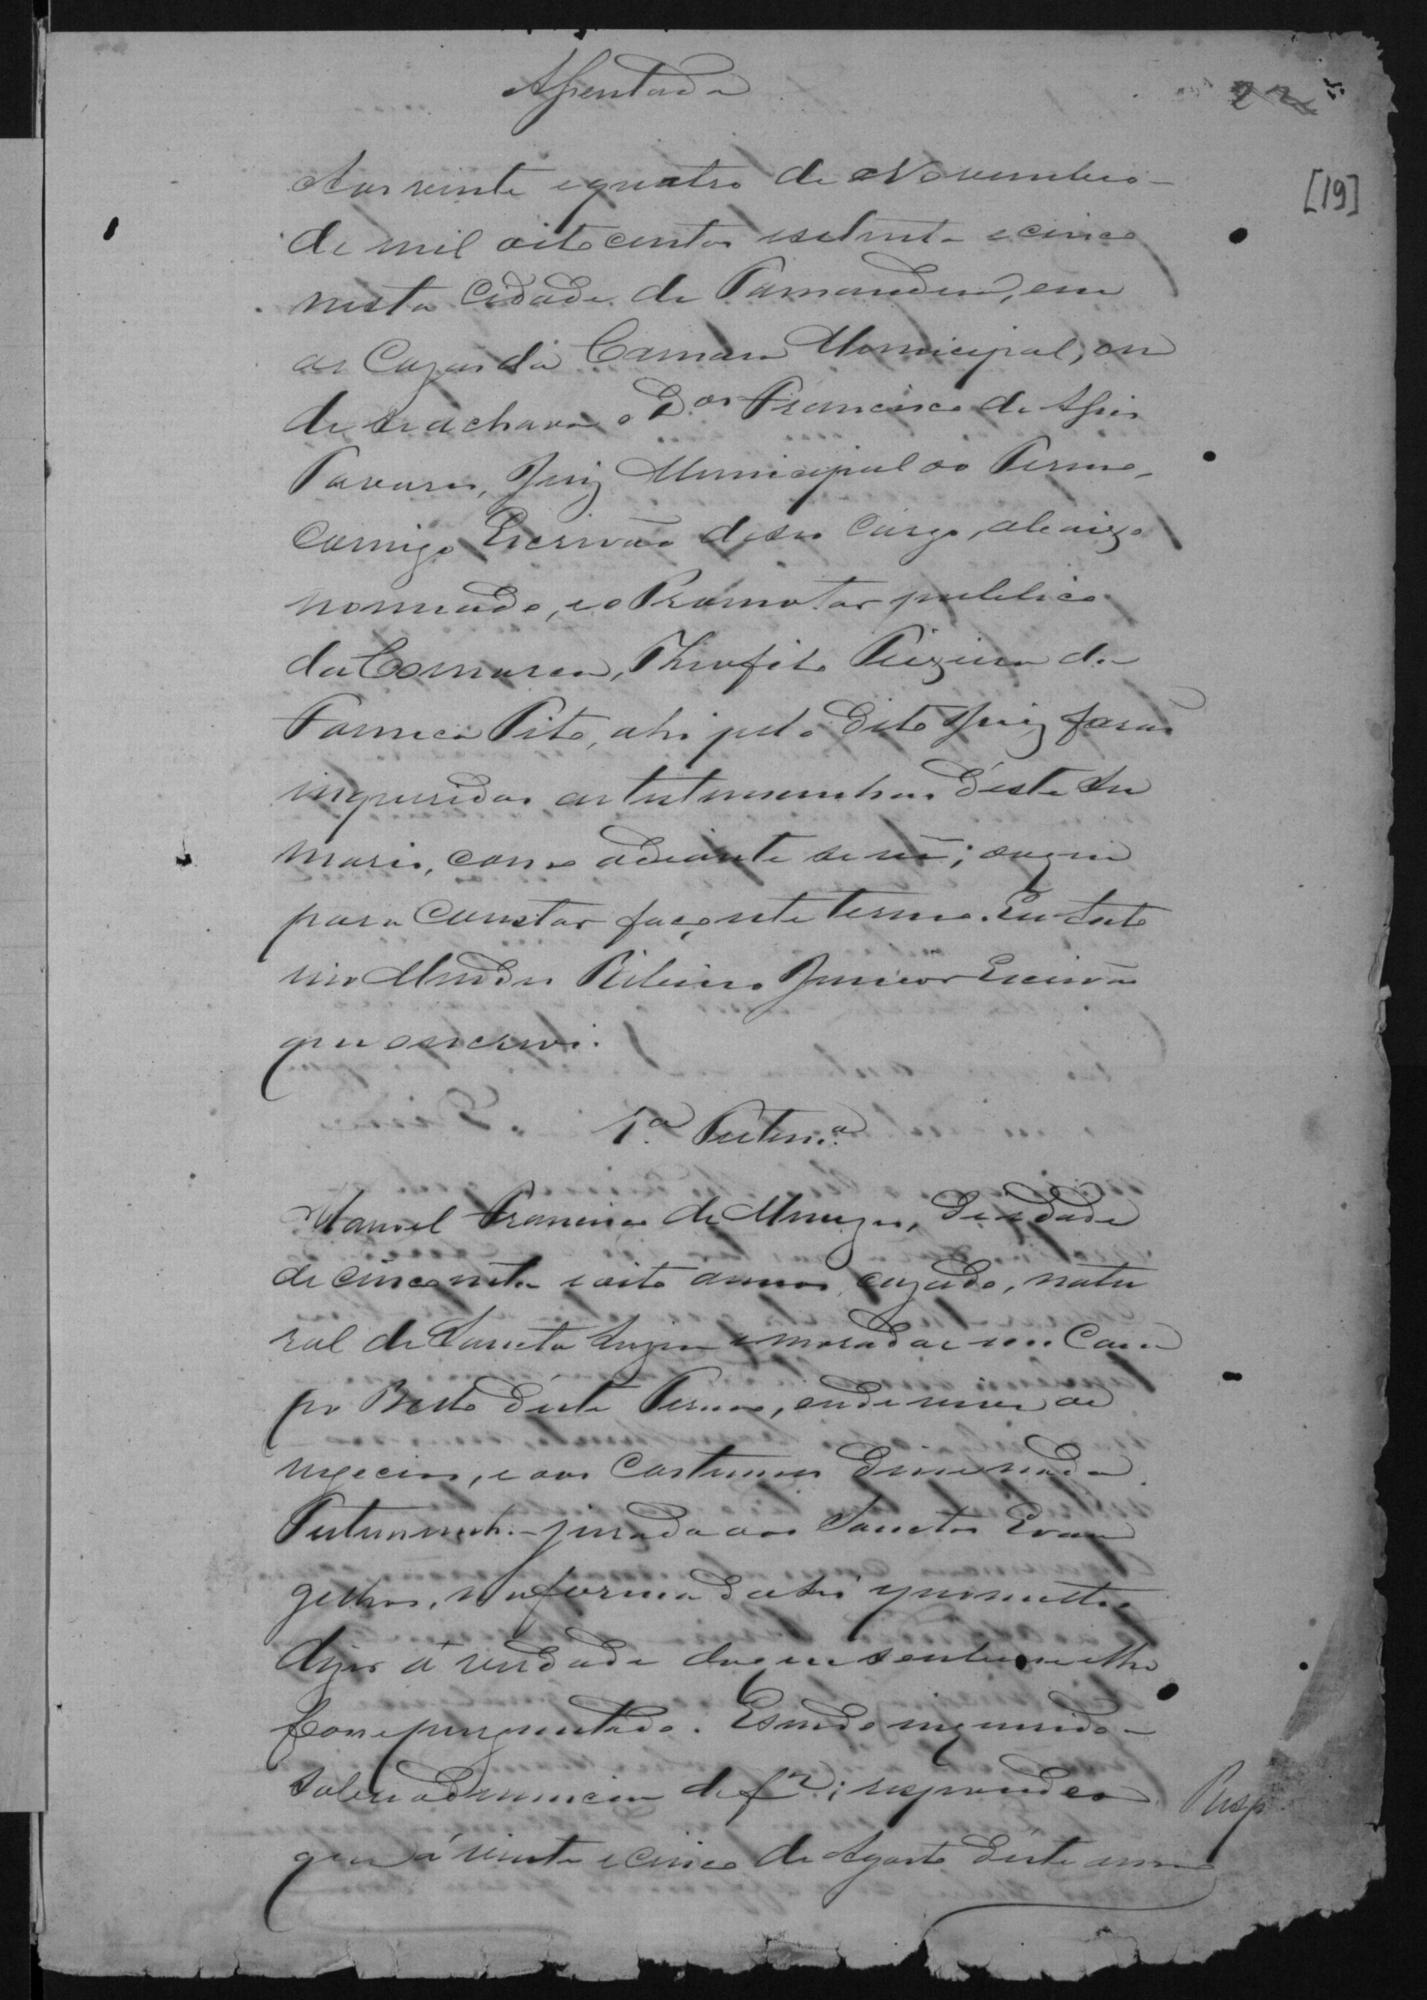 Assentada
22
[19]
Aos vinte equatro de Novembro
de mil oito centos esetenta ecinco
nesta Cidade de Tamanduá, em
as Cazas da Camara Monicipal, on
de seachava o Dor Francisco de Assis
Tavares, Juiz Municipal do Termo,
comigo Escrivão deseo cargo, abaixo
nomeado, eo Promotor publico
da Comarca, Theofilo Pereira da
Fonseca, ahi pelo dito Juiz forão
inqueridas astestemunhas d'este Su
mario, como adiante se vê; doque
para constar faço este termo. Eu
Mendes Ribeiro Junior Escrivão
que oescrevi.
1.a Testm.a
Manoel Francisco de Menezes, de idade
de cincoenta eoito annos, cazado, natu
ral de Sancta Luzia emorador no Cam
po Bello d'este Termo, onde vive de
negocios, eaos costumes disse nada.
Testemunha jurada aos Sanctos Evan
gelhos, na forma da Lei eprometteo
dizer á verdade doque soubesse elhe
fosse perguntado. Esendo inquerido
sobre adenuncia de f2; respondeo
Resp
que á vinte ecinco de Agosto d'este anno